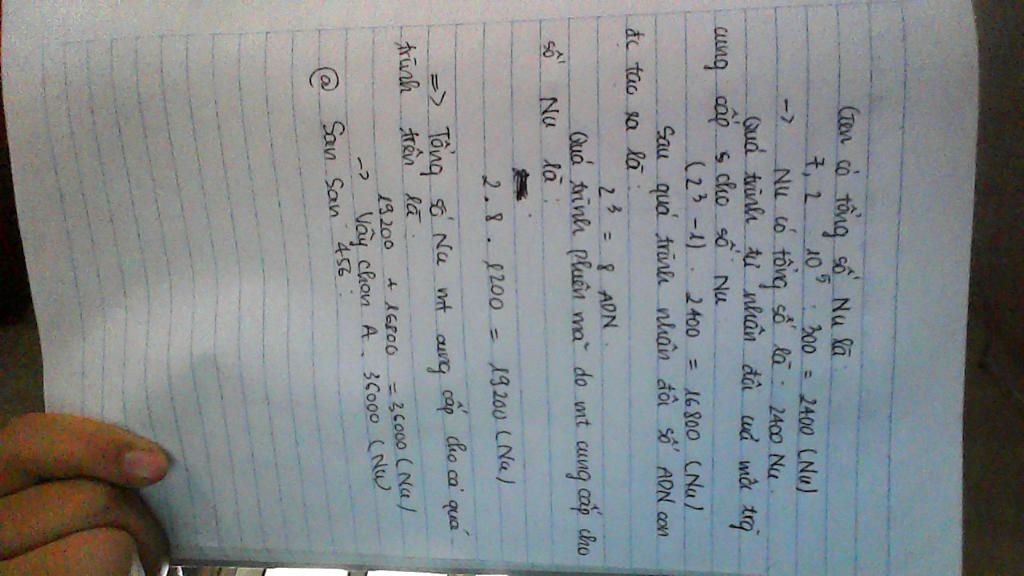 Gen có tổng số Nu là:
7,2 10⁵ : 300 = 2400 (Nu)
-> Nu có tổng số là: 2400 Nu.
Quá trình tự nhân đôi cư môi trg
cung cấp s cho số Nu
(2³ - 1) . 2400 = 16800 (Nu)
Sau quá trình nhân đôi số ADN con
đc tạo ra là:
2³ = 8 ADN.
Quá trình phiên mã do mt cung cấp cho
số Nu là:
2 . 8 . 1200 = 19200 (Nu)
=> Tổng số Nu mt cung cấp cho cả quá
trình trên là:
19200 + 16800 = 36000 (Nu)
-> Vậy chọn A. 36000 (Nu)
@ San San 456.